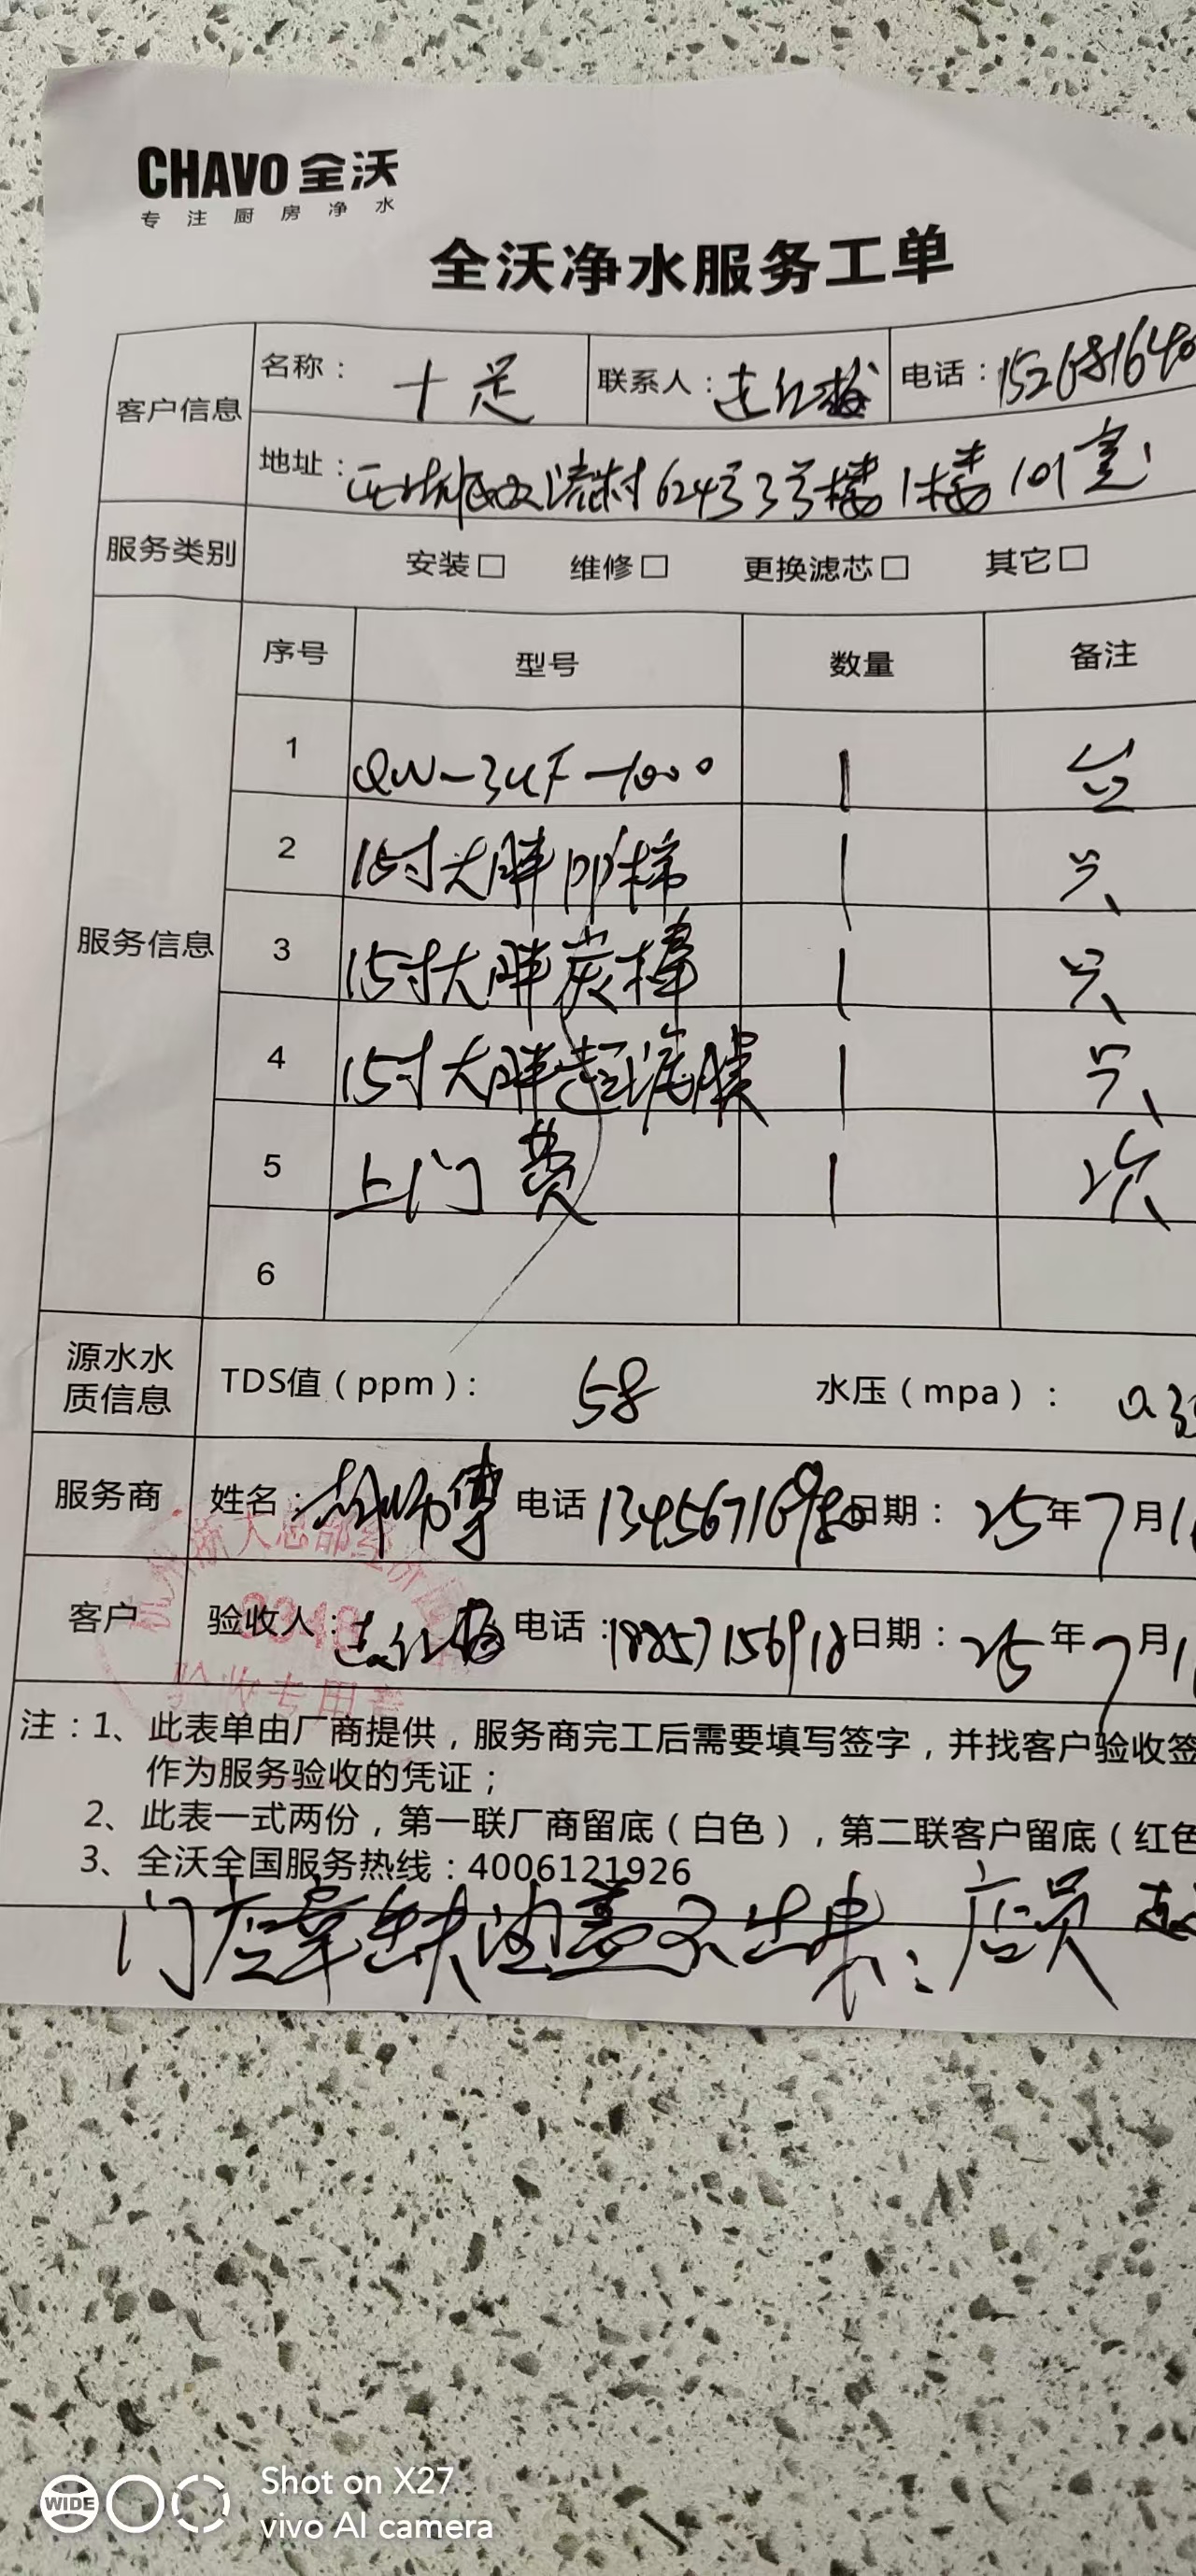 CHAVO 全沃
专注厨房净水
全沃净水服务工单
客户信息 名称: 十足 联系人: 红梅 电话: 152681640
地址: 村624号3号楼1楼101室
服务类别 安装□ 维修□ 更换滤芯□ 其它□
服务信息 序号 型号 数量 备注
1 QW-3UF-1000 1 台
2 15寸大胖PP棉 1 只
3 15寸大胖炭棒 1 只
4 15寸大胖超滤膜 1 只
5 上门费 1 次
6
源水水质信息 TDS值(ppm): 58 水压(mpa): 0.3
服务商 姓名: 师傅 电话 13456716980 日期: 25年7月1
客户 验收人: 红梅 电话: 18257156918 日期: 25年7月1
验收专用章
注:1、此表单由厂商提供,服务商完工后需要填写签字,并找客户验收签
作为服务验收的凭证;
2、此表一式两份,第一联厂商留底(白色),第二联客户留底(红色
3、全沃全国服务热线:4006121926
门店章缺油盖不出来. 店员
Shot on X27
vivo AI camera
WIDE